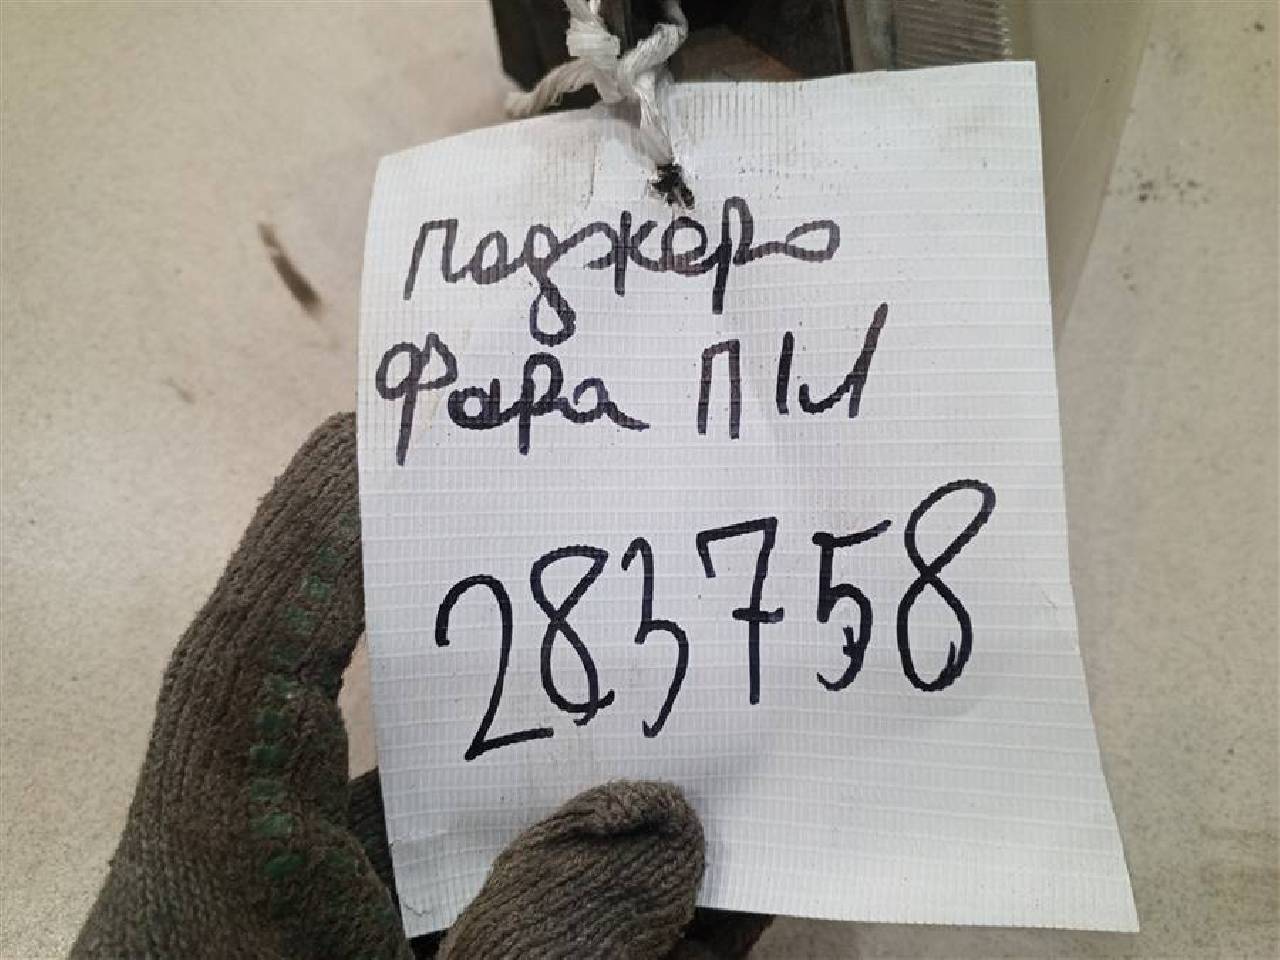 Паджеро
Фара П Л
283758